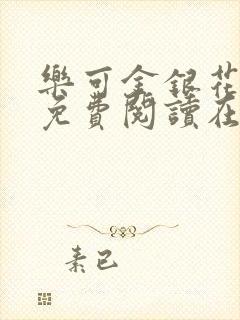 樂可金銀花
免費閱讀在
素已